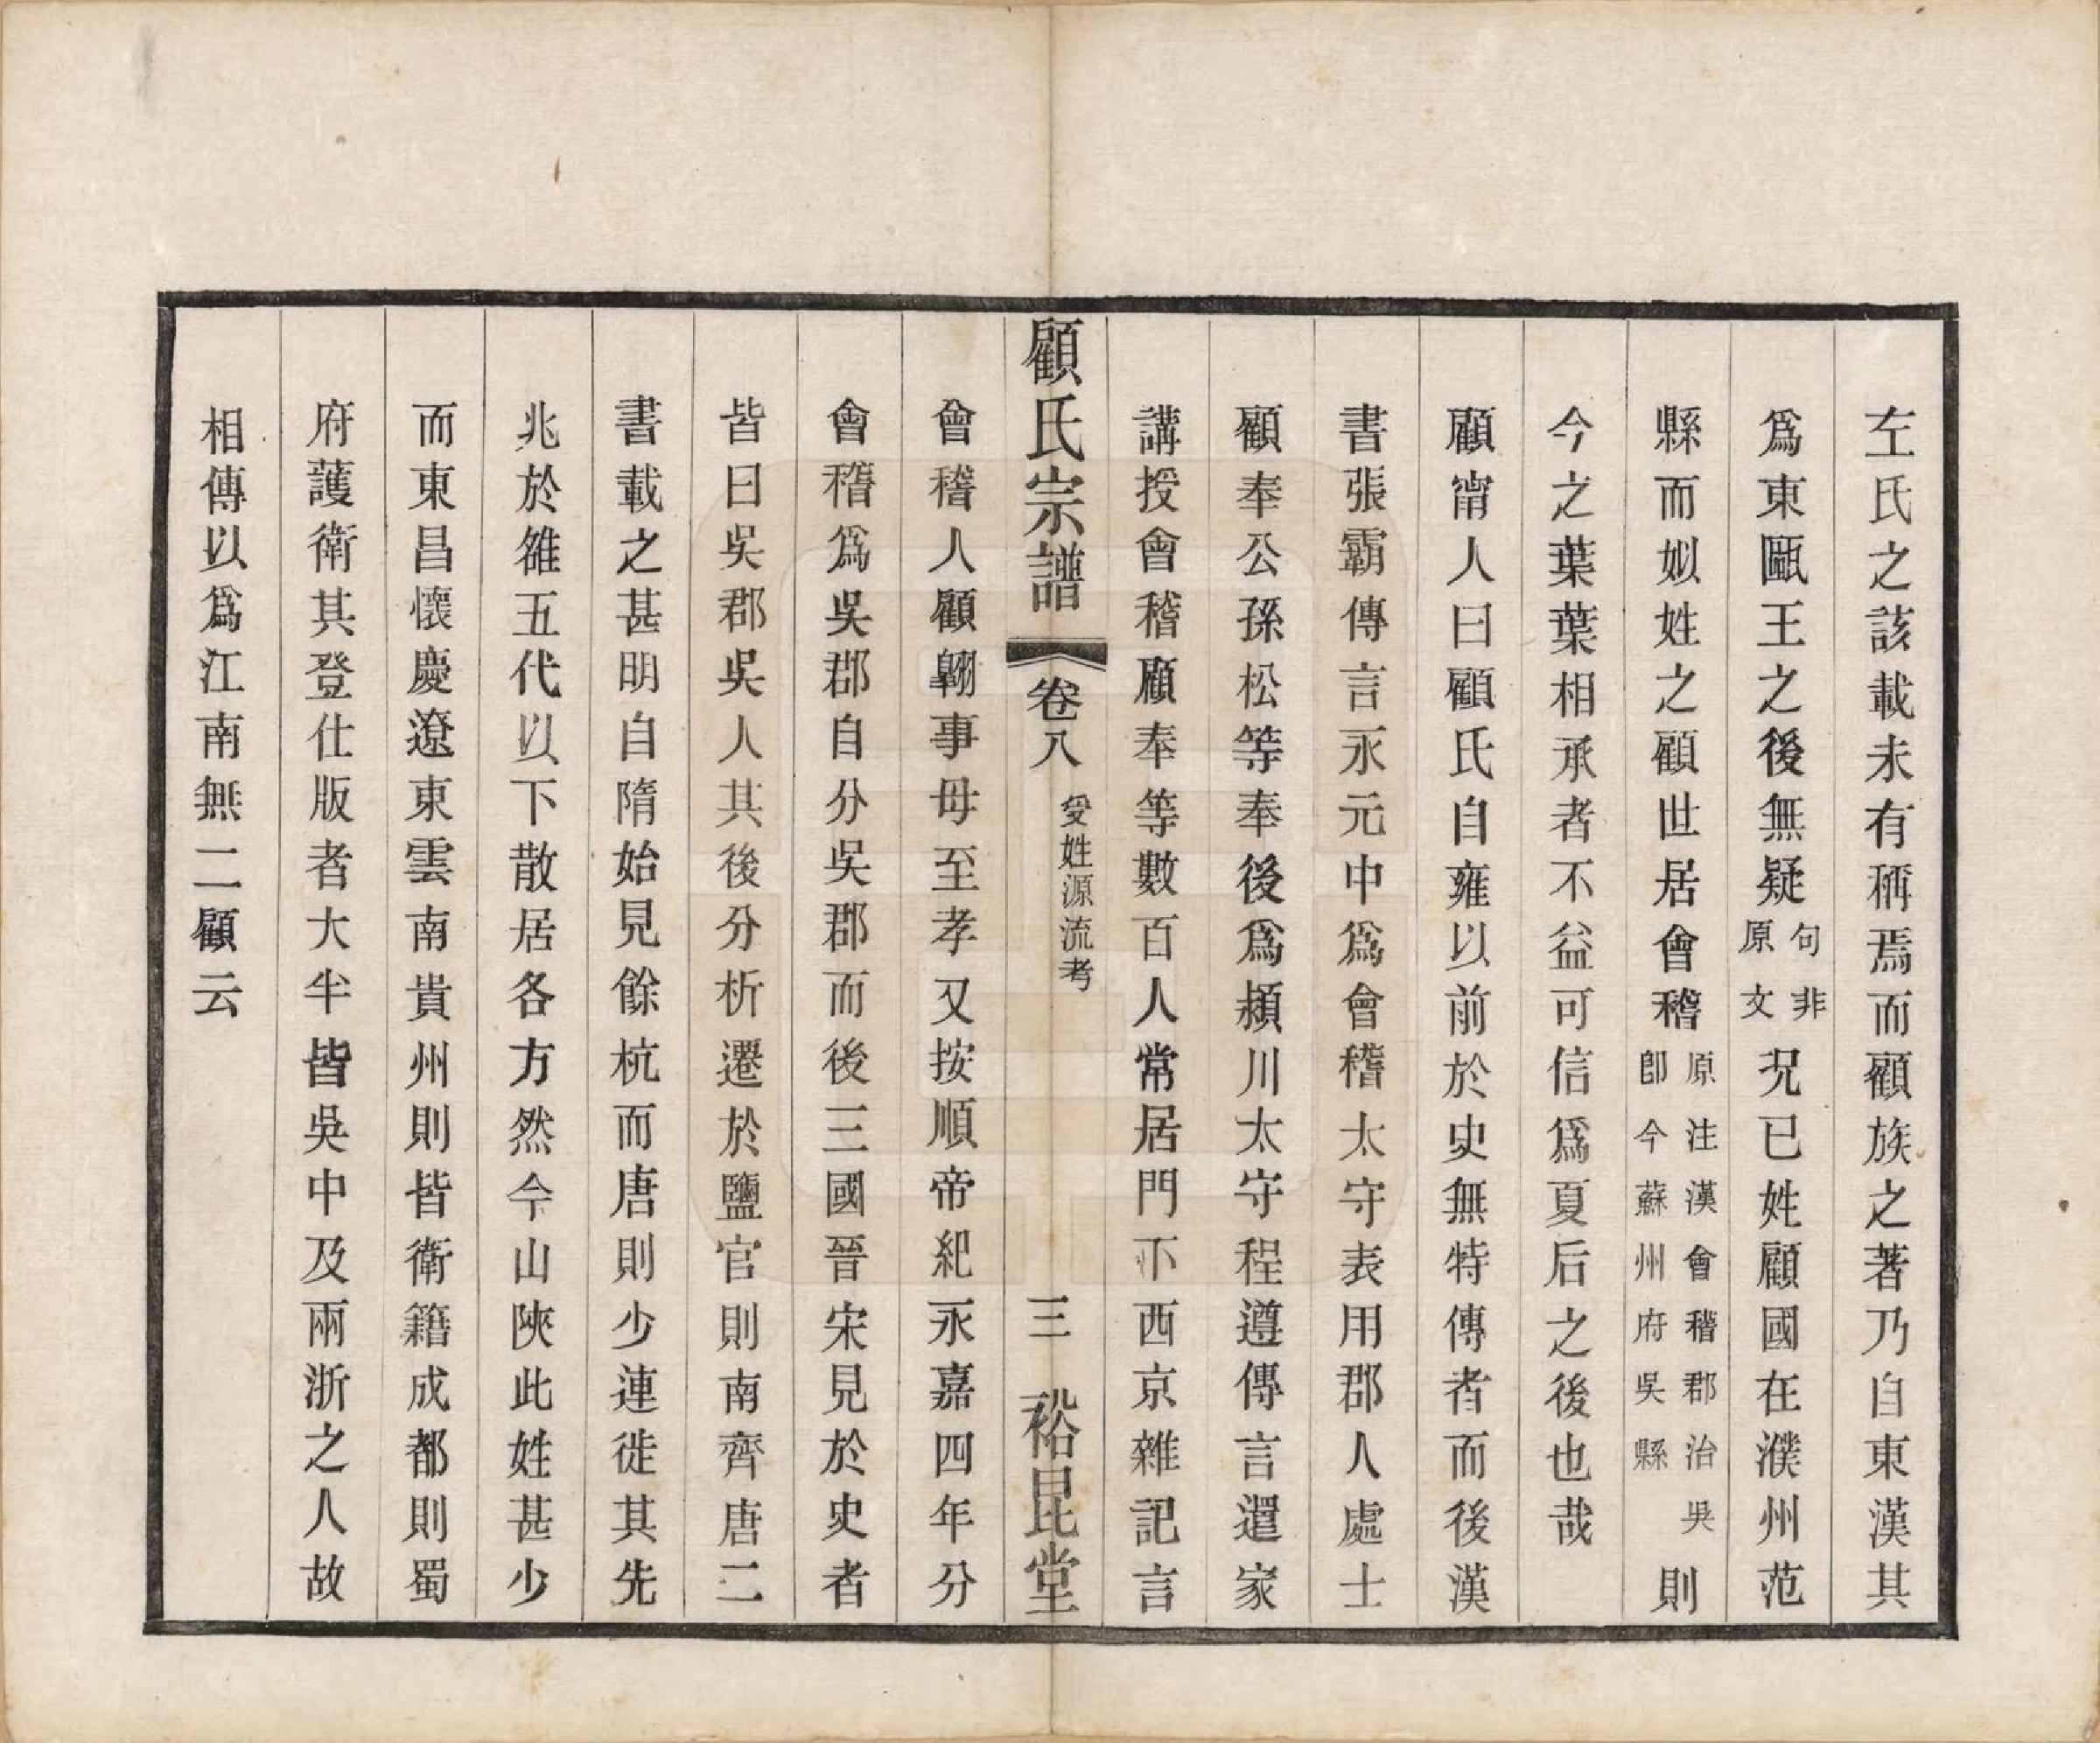 左氏之該載未有稱焉而顧族之著乃自東漢其
爲東甌王之後無疑句非原文況已姓顧國在濮州范
縣而姒姓之顧世居會稽原注漢會稽郡治吳卽今蘇州府吳縣則
今之葉葉相承者不益可信爲夏后之後也哉
顧甯人曰顧氏自雍以前於史無特傳者而後漢
書張霸傳言永元中爲會稽太守表用郡人處士
顧奉公孫松等奉後爲潁川太守程遵傳言還家
講授會稽顧奉等數百人常居門下西京雜記言
顧氏宗譜 卷八 受姓源流考 三 裕昆堂
會稽人顧翱事母至孝又按順帝紀永嘉四年分
會稽爲吳郡自分吳郡而後三國晉宋見於史者
皆曰吳郡吳人其後分析遷於鹽官則南齊唐二
書載之甚明自隋始見餘杭而唐則少連徙其先
兆於雒五代以下散居各方然今山陝此姓甚少
而東昌懷慶遼東雲南貴州則皆衛籍成都則蜀
府護衛其登仕版者大半皆吳中及兩浙之人故
相傳以爲江南無二顧云